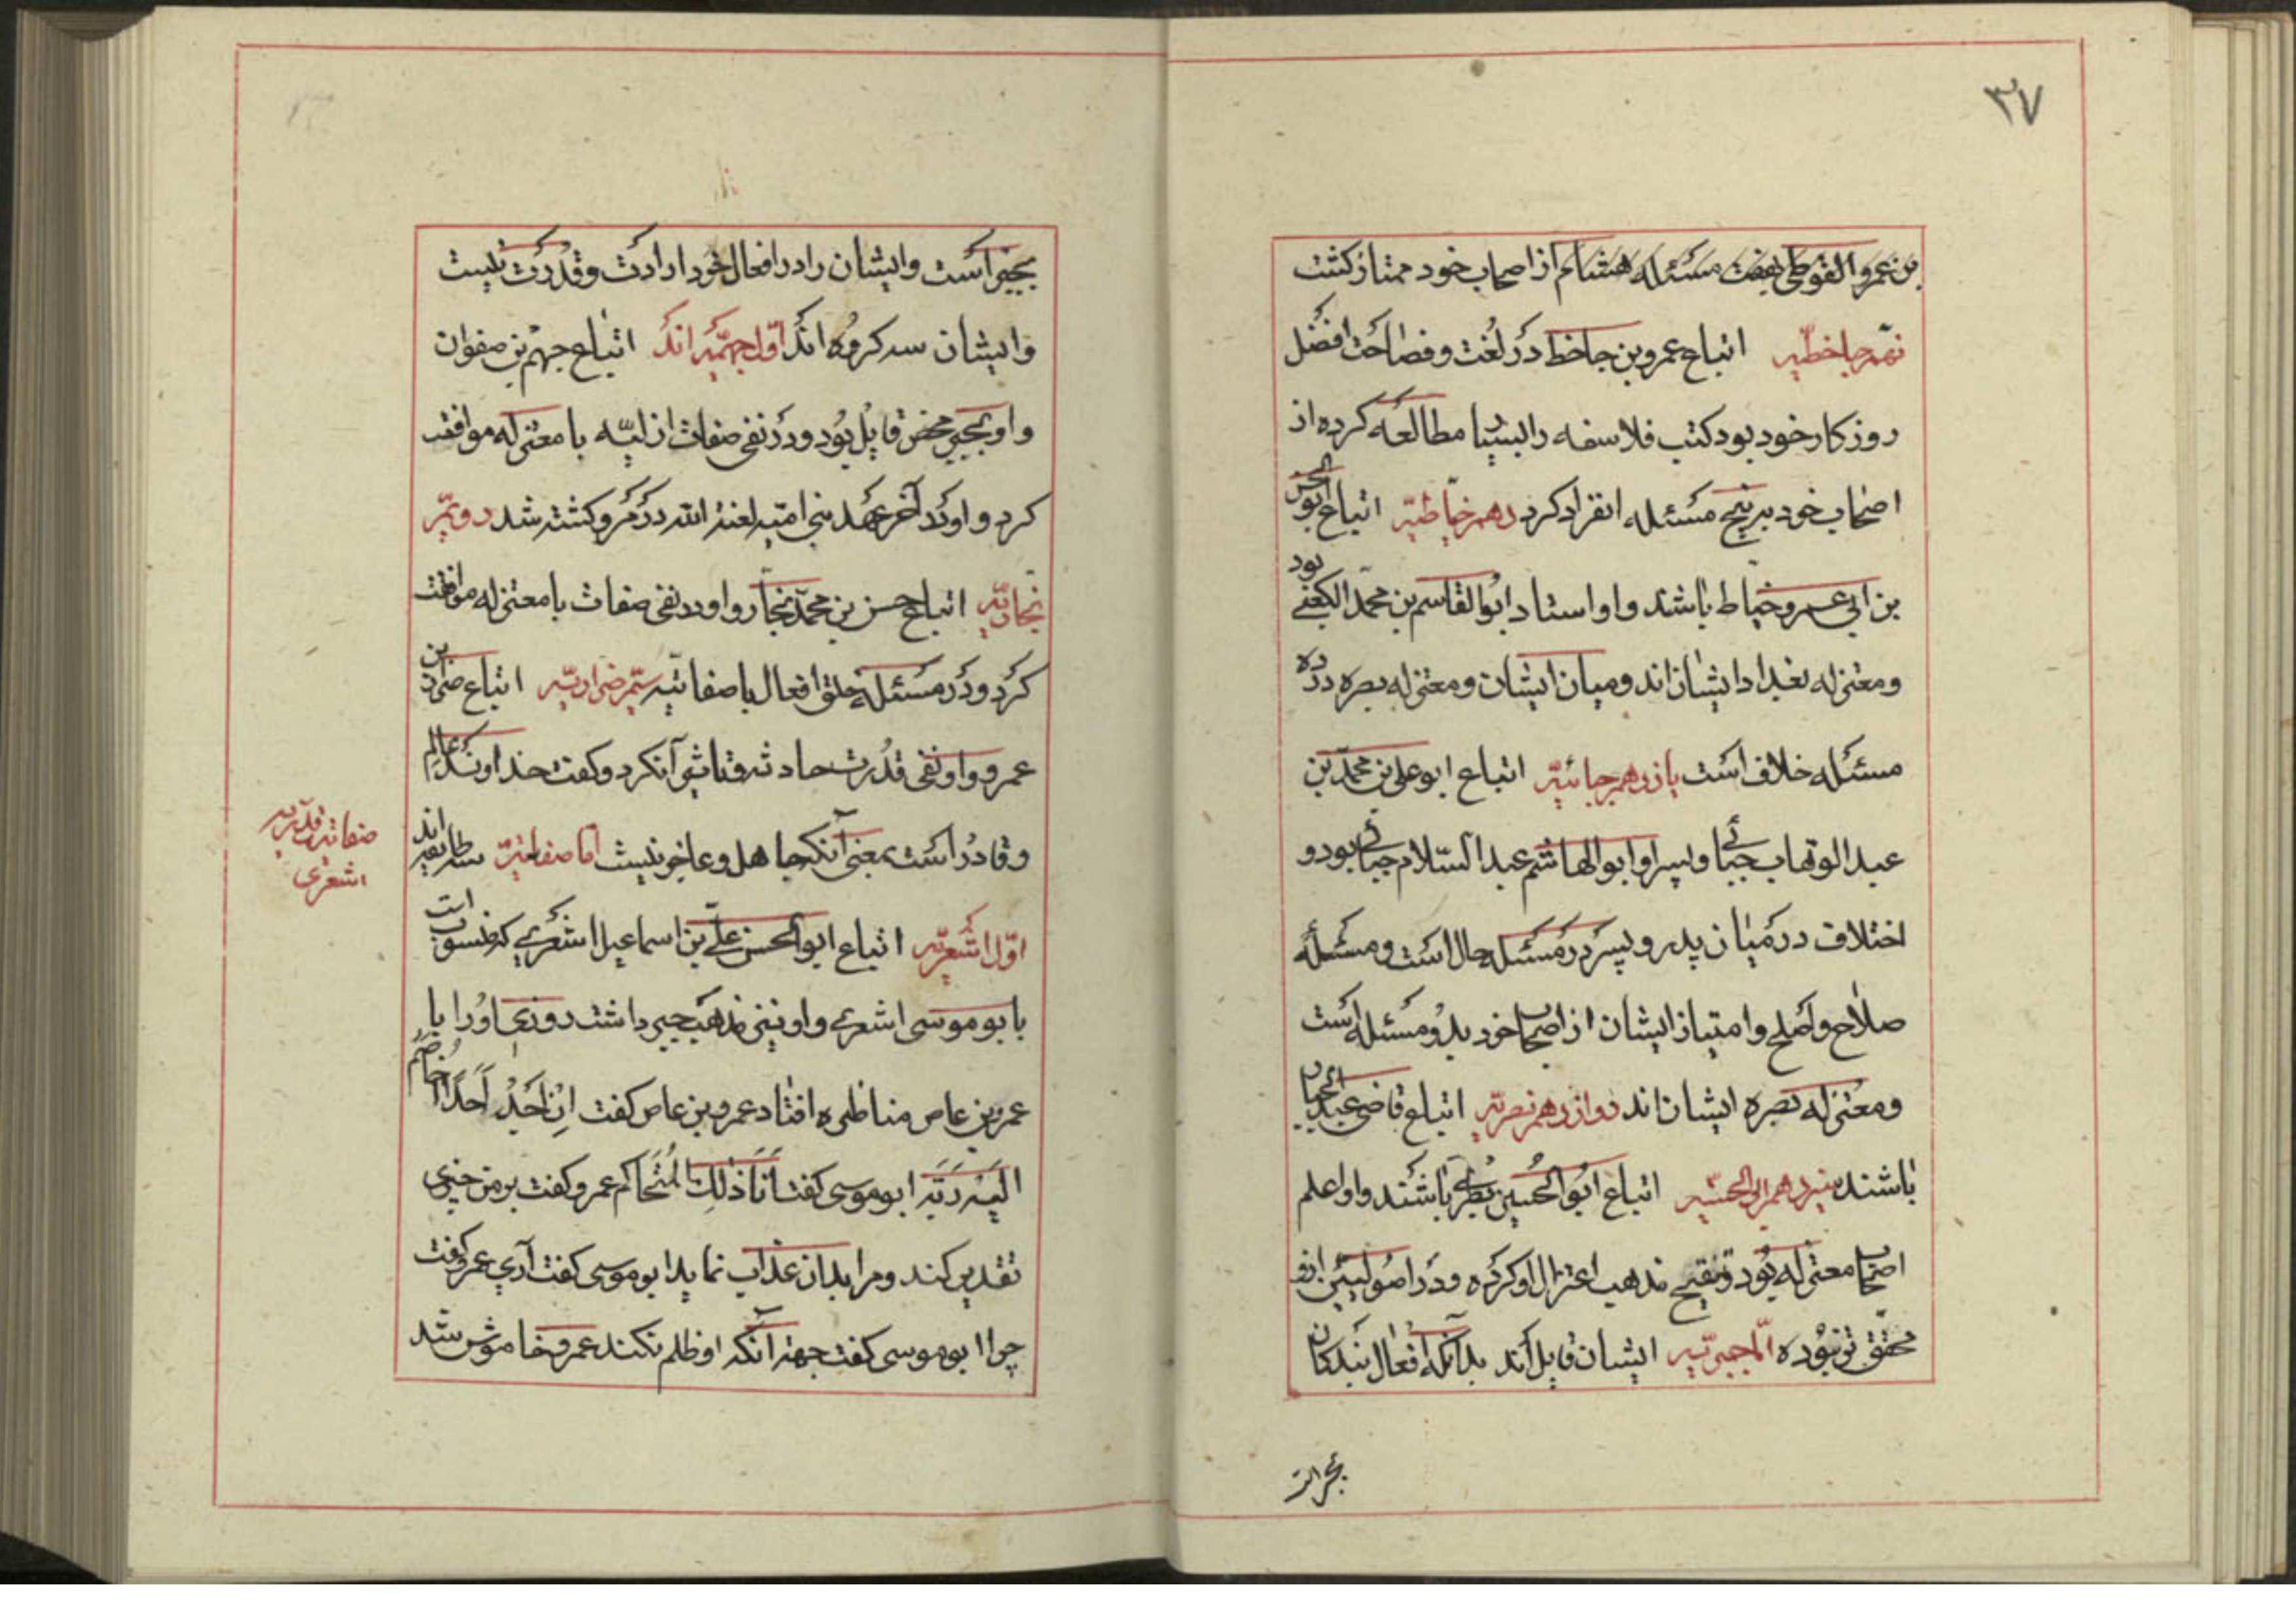 ۳۷
بن عمرو الفوطی بهفت مسئله هشام از اصحاب خود ممتاز کشت
نهم جاحظیه اتباع عمرو بن جاحظ در لغت و فصاحت افضل
روزکار خود بود کتب فلاسفه را بسیار مطالعه کرده از
اصحاب خود بر پنج مسئله انفراد کرد دهم خیاطیه اتباع ابو الحسن
بن ابی عمرو خیاط باشند و او استاد ابو القاسم بن محمد الکعبی بود
و معتزله بغداد ایشان اند و میان ایشان و معتزله بصره در ده
مسئله خلاف است یازدهم جبائیه اتباع ابو علی بن محمد بن
عبد الوهاب جبائی و پسر او ابو الهاشم عبد السلام جبائی بود و
اختلاف در میان پدر و پسر در مسئله حال است و مسئله
صلاح و اصلح و امتیاز ایشان از اصحاب خود بدو مسئله است
و معتزله بصره ایشان اند دوازدهم نصریه اتباع قاضی عبد الجبار
باشند سیزدهم ابی الحسینیه اتباع ابو الحسین بصری باشند و او اعلم
اصحاب معتزله بود و تنقیح مذهب اعتزال او کرده و در اصولیین ازو
محقق تر نبوده اما جبریه ایشان قایل اند بدانکه افعال بندکان
بجبر است
بجبر است و ایشان را در افعال خود ارادت و قدرت نیست
و ایشان سه کروه اند اول جهمیه اند اتباع جهم بن صفوان
و او بجبر محض قایل بود و در نفی صفات ازلیه با معتزله موافقت
کرد و او در آخر عهد بنی امیه لعنة الله در مرو کشته شد دویم
نجاریه اتباع حسن بن محمد نجار و او در نفی صفات با معتزله موافقت
کرد و در مسئله خلق افعال با صفاتیه سیم ضراریه اتباع ضرار بن
عمرو و او نفی قدرت حادثه و تاثیر آن کرد و کفت خداوند عالم
و قادر است بمعنی آنکه جاهل و عاجز نیست اما صفاتیه سه طایفه اند
اول اشعریه اتباع ابو الحسن علی بن اسماعیل اشعری که منسوب است
با بو موسی اشعری و او نیز مذهب جبر داشت روزی او را با
عمرو بن عاص مناظره افتاد عمرو بن عاص کفت ان احد احدا اخاصم
الیه ربه ابو موسی کفت انا ذلک المتحاکم عمرو کفت بر من چیزی
تقدیر کند و مرا بدان عذاب نماید ابو موسی کفت آری عمرو کفت
چرا ابو موسی کفت جهة آنکه او ظلم نکند عمرو خاموش شد
صفاتیه قدریه
اشعری